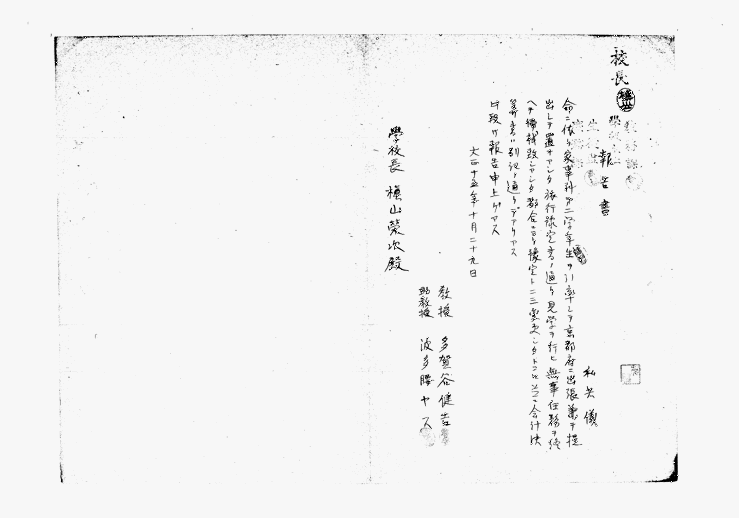 校長
報告書
私共儀
命ニ依リ家事科第二学年生ヲ引率シテ京都府ニ出張兼テ提
出シテ置キマシタ旅行予定書ノ通リ見学ヲ行ヒ無事任務ヲ終
ヘテ帰校致シマシタ都合ニヨリ予定ト二三変更シタトコロモ
算書ハ別紙ノ通リデアリマス
此段及報告申上ゲマス
大正十五年十月二十九日
教授 多賀谷健吉
助教授 波多腰ヤス
學校長 槇山榮次殿